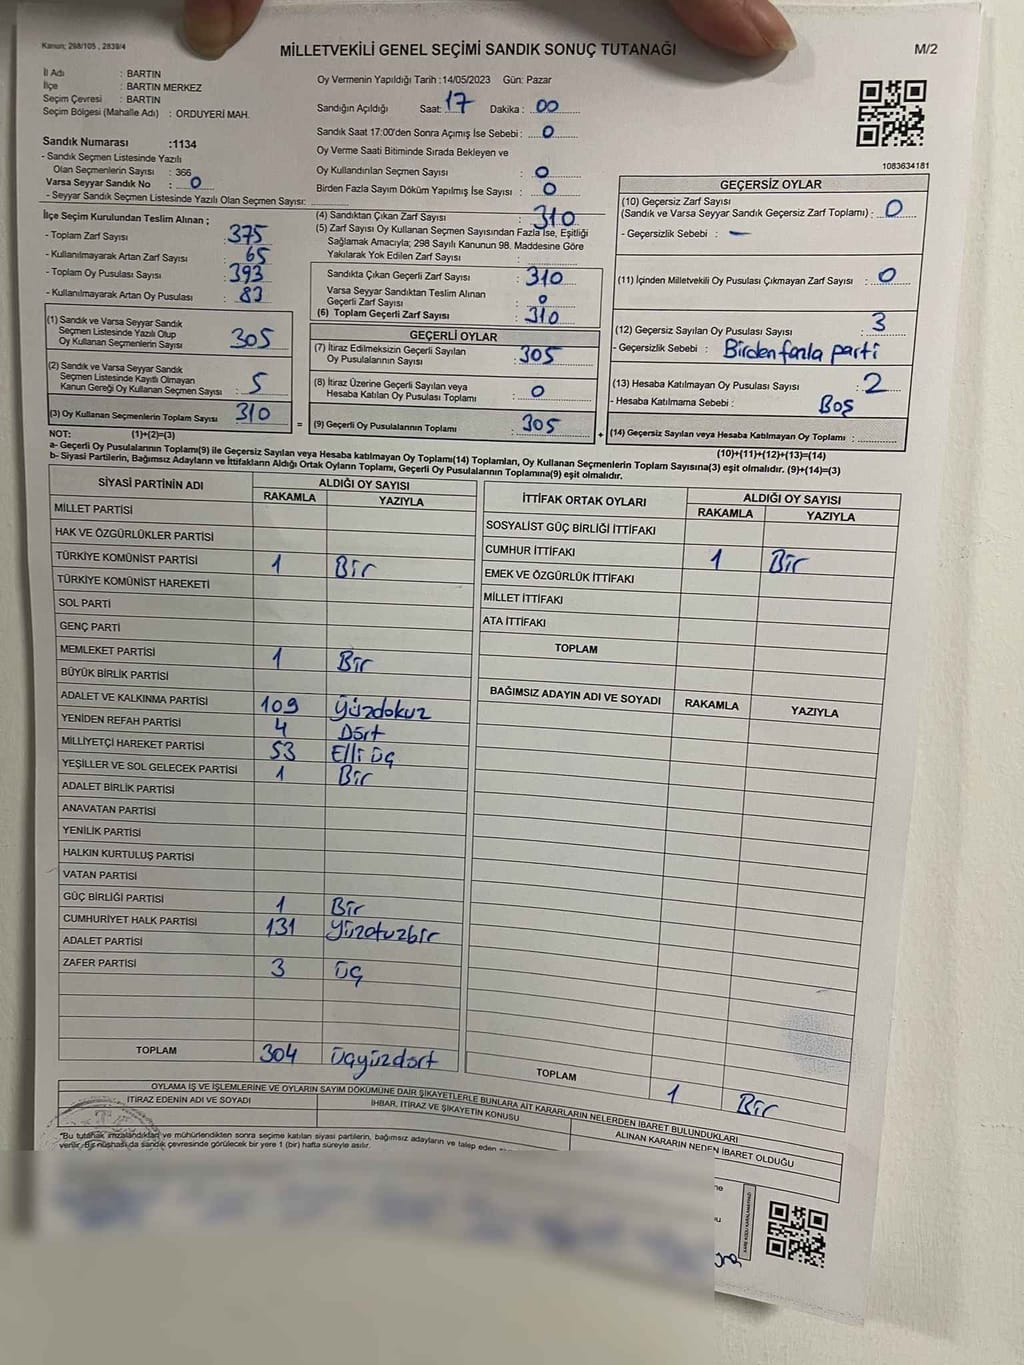 Kanun; 298/105 , 2839/4
MİLLETVEKİLİ GENEL SEÇİMİ SANDIK SONUÇ TUTANAĞI
M/2
İl Adı : BARTIN
İlçe : BARTIN MERKEZ
Seçim Çevresi : BARTIN
Seçim Bölgesi (Mahalle Adı) : ORDUYERİ MAH.
Oy Vermenin Yapıldığı Tarih :14/05/2023 Gün: Pazar
Sandığın Açıldığı Saat: 17 Dakika : 00
Sandık Saat 17:00'den Sonra Açımış İse Sebebi : 0
Oy Verme Saati Bitiminde Sırada Bekleyen ve
Oy Kullandırılan Seçmen Sayısı : 0
Birden Fazla Sayım Döküm Yapılmış İse Sayısı : 0
1083634181
Sandık Numarası :1134
- Sandık Seçmen Listesinde Yazılı
Olan Seçmenlerin Sayısı : 366
Varsa Seyyar Sandık No : 0
- Seyyar Sandık Seçmen Listesinde Yazılı Olan Seçmen Sayısı:
İlçe Seçim Kurulundan Teslim Alınan ;
- Toplam Zarf Sayısı : 375
- Kullanılmayarak Artan Zarf Sayısı : 65
- Toplam Oy Pusulası Sayısı : 393
- Kullanılmayarak Artan Oy Pusulası : 83
(1) Sandık ve Varsa Seyyar Sandık
Seçmen Listesinde Yazılı Olup
Oy Kullanan Seçmenlerin Sayısı : 305
(2) Sandık ve Varsa Seyyar Sandık
Seçmen Listesinde Kayıtlı Olmayan
Kanun Gereği Oy Kullanan Seçmen Sayısı : 5
(3) Oy Kullanan Seçmenlerin Toplam Sayısı 310
(4) Sandıktan Çıkan Zarf Sayısı : 310
(5) Zarf Sayısı Oy Kullanan Seçmen Sayısından Fazla İse, Eşitliği
Sağlamak Amacıyla; 298 Sayılı Kanunun 98. Maddesine Göre
Yakılarak Yok Edilen Zarf Sayısı :
Sandıkta Çıkan Geçerli Zarf Sayısı : 310
Varsa Seyyar Sandıktan Teslim Alınan
Geçerli Zarf Sayısı : 0
(6) Toplam Geçerli Zarf Sayısı : 310
GEÇERLİ OYLAR
(7) İtiraz Edilmeksizin Geçerli Sayılan
Oy Pusulalarının Sayısı : 305
(8) İtiraz Üzerine Geçerli Sayılan veya
Hesaba Katılan Oy Pusulası Toplamı : 0
(9) Geçerli Oy Pusulalarının Toplamı : 305
GEÇERSİZ OYLAR
(10) Geçersiz Zarf Sayısı
(Sandık ve Varsa Seyyar Sandık Geçersiz Zarf Toplamı) : 0
- Geçersizlik Sebebi : —
(11) İçinden Milletvekili Oy Pusulası Çıkmayan Zarf Sayısı : 0
(12) Geçersiz Sayılan Oy Pusulası Sayısı : 3
- Geçersizlik Sebebi : Birden fazla parti
(13) Hesaba Katılmayan Oy Pusulası Sayısı : 2
- Hesaba Katılmama Sebebi : Boş
(14) Geçersiz Sayılan veya Hesaba Katılmayan Oy Toplamı :
NOT: (1)+(2)=(3)
(10)+(11)+(12)+(13)=(14)
a- Geçerli Oy Pusulalarının Toplamı(9) ile Geçersiz Sayılan veya Hesaba katılmayan Oy Toplamı(14) Toplamları, Oy Kullanan Seçmenlerin Toplam Sayısına(3) eşit olmalıdır. (9)+(14)=(3)
b- Siyasi Partilerin, Bağımsız Adayların ve İttifakların Aldığı Ortak Oyların Toplamı, Geçerli Oy Pusulalarının Toplamına(9) eşit olmalıdır.
SİYASİ PARTİNİN ADI ALDIĞI OY SAYISI
RAKAMLA YAZIYLA
MİLLET PARTİSİ
HAK VE ÖZGÜRLÜKLER PARTİSİ
TÜRKİYE KOMÜNİST PARTİSİ 1 Bir
TÜRKİYE KOMÜNİST HAREKETİ
SOL PARTİ
GENÇ PARTİ
MEMLEKET PARTİSİ 1 Bir
BÜYÜK BİRLİK PARTİSİ
ADALET VE KALKINMA PARTİSİ 109 Yüzdokuz
YENİDEN REFAH PARTİSİ 4 Dört
MİLLİYETÇİ HAREKET PARTİSİ 53 Elli üç
YEŞİLLER VE SOL GELECEK PARTİSİ 1 Bir
ADALET BİRLİK PARTİSİ
ANAVATAN PARTİSİ
YENİLİK PARTİSİ
HALKIN KURTULUŞ PARTİSİ
VATAN PARTİSİ
GÜÇ BİRLİĞİ PARTİSİ 1 Bir
CUMHURİYET HALK PARTİSİ 131 Yüzotuzbir
ADALET PARTİSİ
ZAFER PARTİSİ 3 Üç
TOPLAM 304 Üçyüzdört
İTTİFAK ORTAK OYLARI ALDIĞI OY SAYISI
RAKAMLA YAZIYLA
SOSYALİST GÜÇ BİRLİĞİ İTTİFAKI
CUMHUR İTTİFAKI 1 Bir
EMEK VE ÖZGÜRLÜK İTTİFAKI
MİLLET İTTİFAKI
ATA İTTİFAKI
TOPLAM
BAĞIMSIZ ADAYIN ADI VE SOYADI RAKAMLA YAZIYLA
TOPLAM 1 Bir
OYLAMA İŞ VE İŞLEMLERİNE VE OYLARIN SAYIM DÖKÜMÜNE DAİR ŞİKAYETLERLE BUNLARA AİT KARARLARIN NELERDEN İBARET BULUNDUKLARI
İTİRAZ EDENİN ADI VE SOYADI
İHBAR, İTİRAZ VE ŞİKAYETİN KONUSU
ALINAN KARARIN NEDEN İBARET OLDUĞU
"Bu tutanak imzalandıktan ve mühürlendikten sonra seçime katılan siyasi partilerin, bağımsız adayların ve talep eden
verilir. Bir nüshası da sandık çevresinde görülecek bir yere 1 (bir) hafta süreyle asılır.